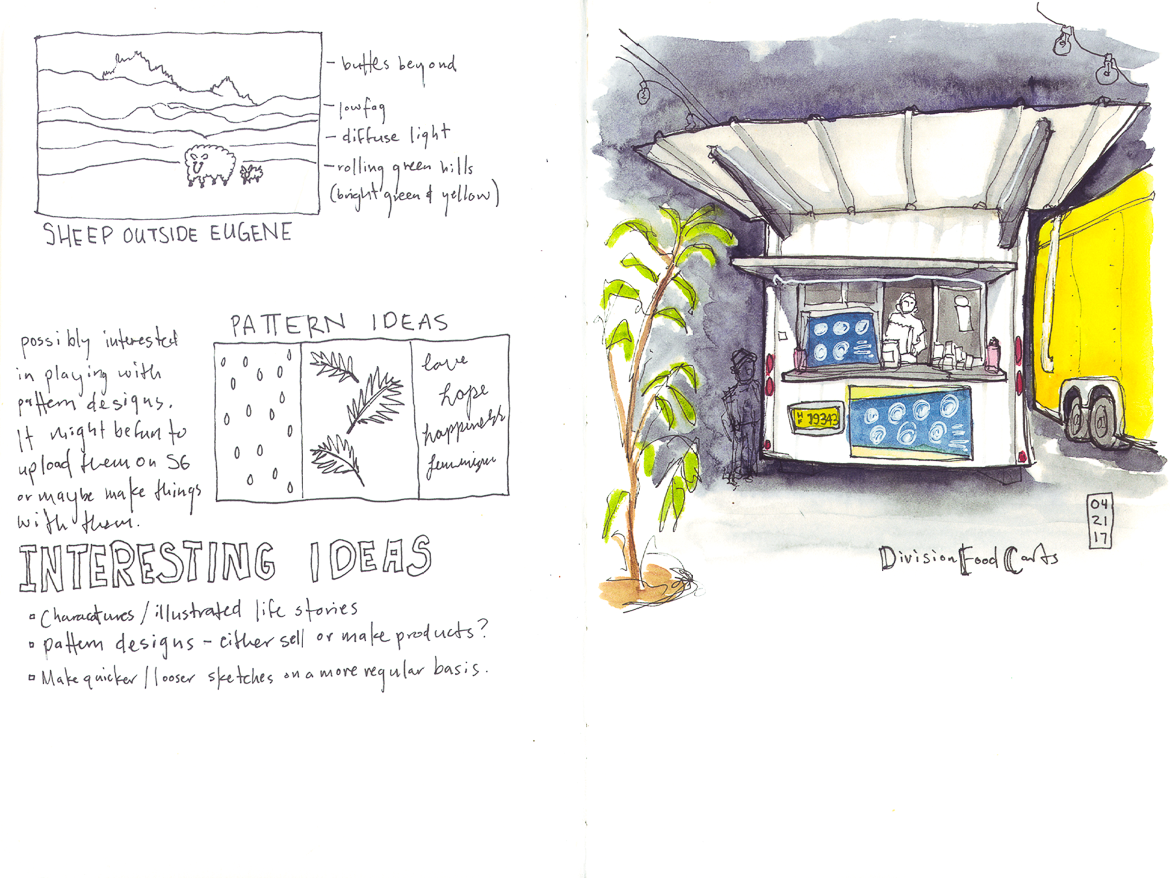 - buttes beyond
- lowfog
- diffuse light
- rolling green hills
(bright green & yellow)
SHEEP OUTSIDE EUGENE
PATTERN IDEAS
possibly interested
in playing with
pattern designs.
It might be fun to
upload them on S6
or maybe make things
with them.
love
hope
happiness
feminism
INTERESTING IDEAS
▫ Characatures / illustrated life stories
▫ pattern designs - either sell or make products?
▫ Make quicker / looser sketches on a more regular basis.
19343
04
21
17
Division Food Carts